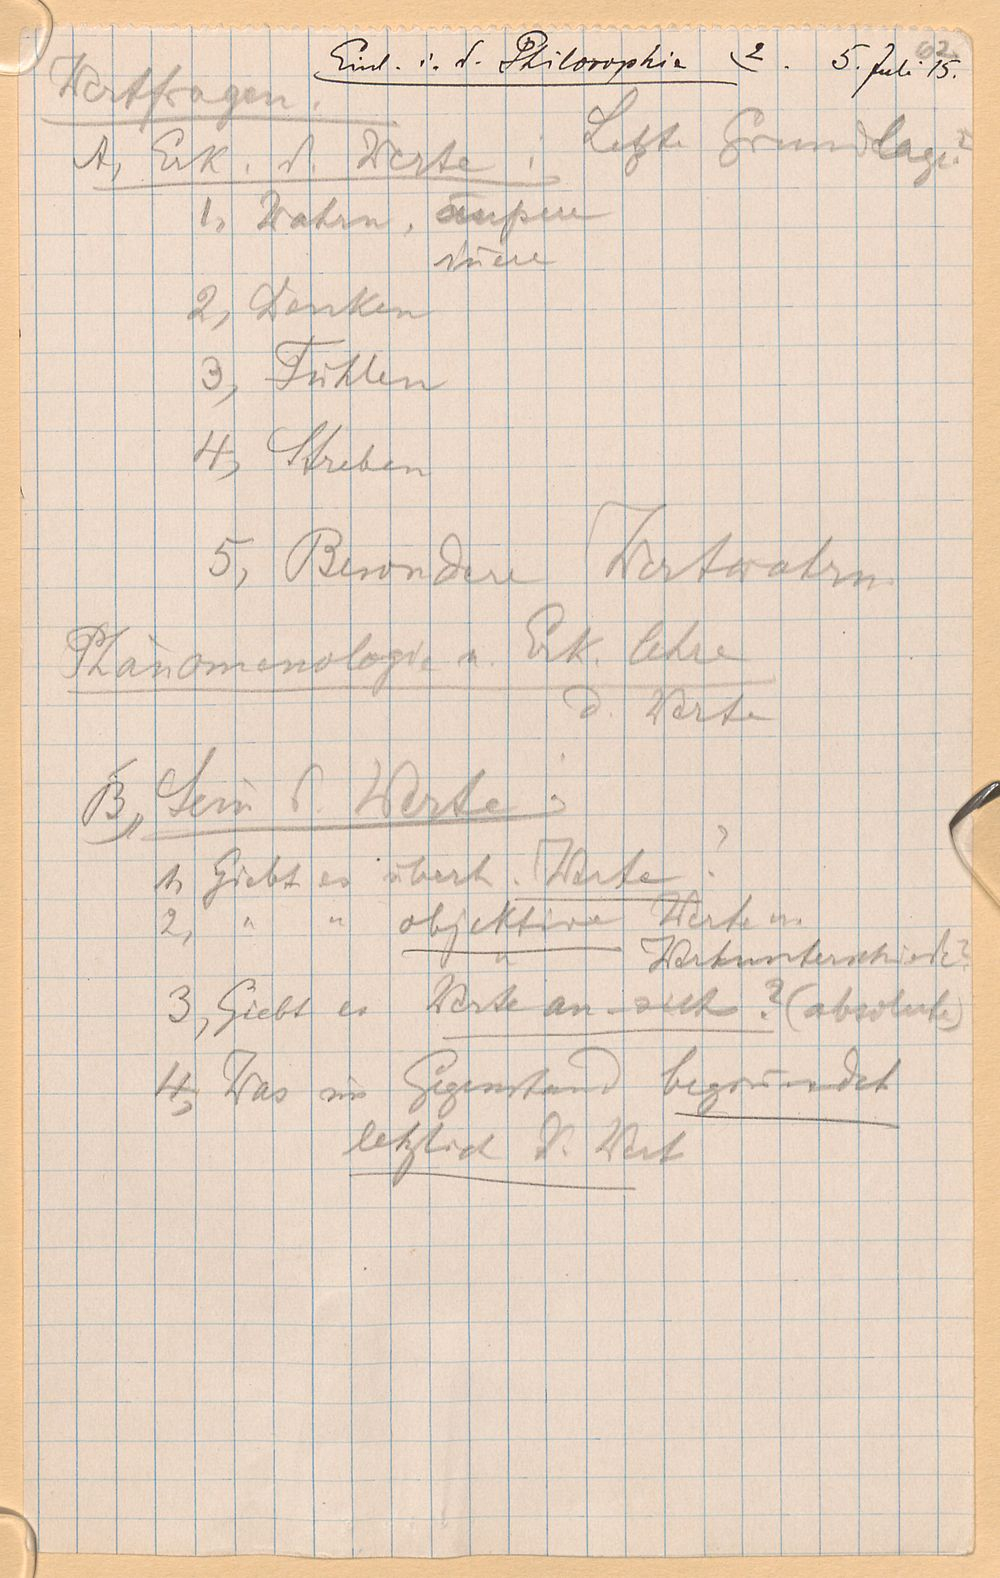 62
Einl. i. d. Philosophie 2. 5. Juli 15.
Wertfragen.
A, Erk. d. Werte : Letzte Grundlage?
1, Wahrn. äußere
innere
2, Denken
3, Fühlen
4, Streben
5, Besondere Wertwahrn.
Phänomenologie u. Erk. lehre
d. Werte
B, Sein d. Werte :
1, Giebt es überh. Werte?
2, " " objektive Werte u.
Wertunterschiede?
3, Giebt es Werte an sich? (absolute)
4, Was im Gegenstand begründet
letztlich d. Wert